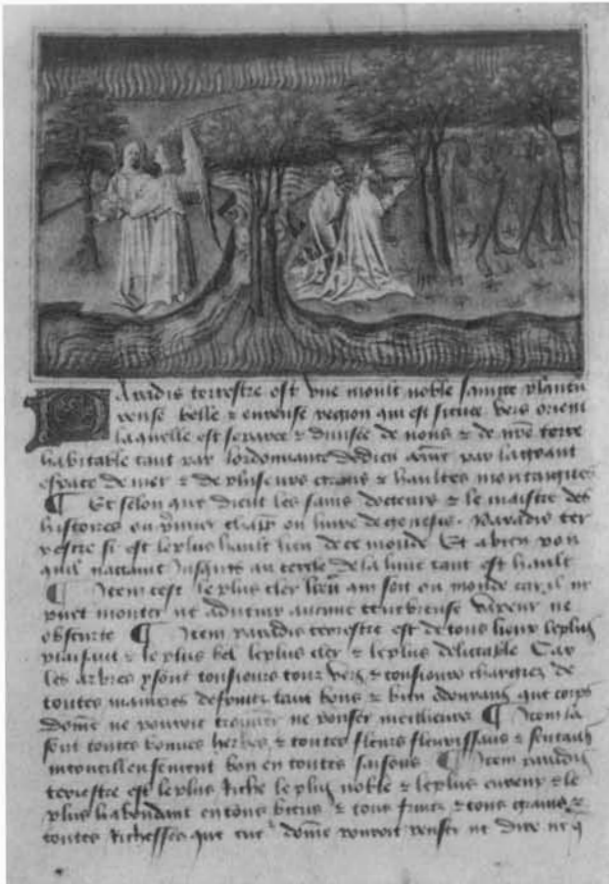 Paradis terrestre est une moult noble sainte plantu
reuse belle & eureuse region qui est située vers orient
laquelle est separee & divisee de nous & de nre terre
habitable tant par lordonnance de dieu come par la grant
espace de mer & de plusieurs grans & haultes montaignes
¶ Et selon que dient les sains docteurs & le maistre des
histoires ou premier chapre ou livre de genesis. Paradis ter
restre si est le plus hault lieu de ce monde Et a bien pou
quil nattaint jusques au cercle de la lune tant est hault
¶ Item cest le plus cler lieu qui soit ou monde car il ne
puet monter ne advenir aucune tenebreuse vapeur ne
obscurte ¶ Item paradis terrestre est de tous lieux le plus
plaisant & le plus bel le plus cler & le plus delittable Car
les arbres y sont tousiours tous vers & tousiours chargiez de
toutes manieres de fruitz tant bons & bien odourans que corps
dome ne pouroit trouver ne penser meilleurs ¶ Item la
sont toutes bonnes herbes & toutes fleurs fleurissans & sentans
merveilleusement bon en toutes saisons ¶ Item paradis
terrestre est le plus riche le plus noble & le plus eureux & le
plus habondant en tous biens & tous fruiz & tous grains &
toutes richesses que cuer dome pouroit penser ne dire ne q